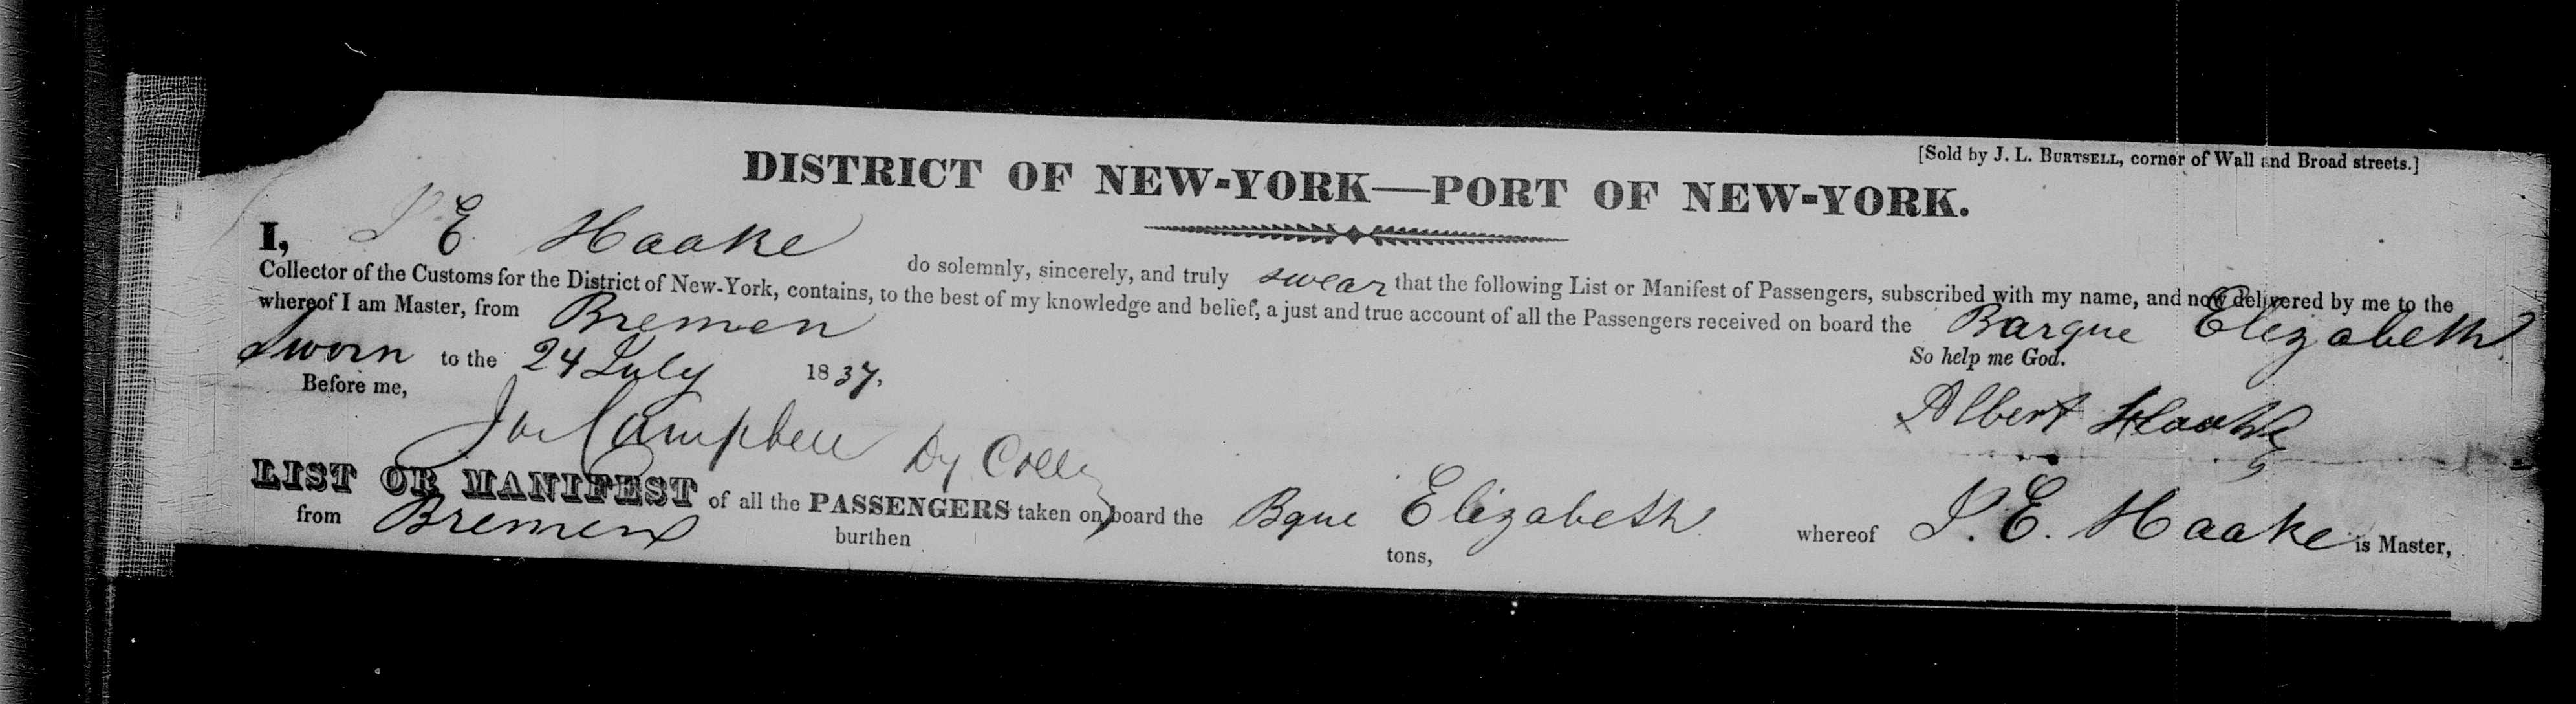 [Sold by J. L. BURTSELL, corner of Wall and Broad streets.]
DISTRICT OF NEW-YORK—PORT OF NEW-YORK.
I, J. E. Haake do solemnly, sincerely, and truly swear that the following List or Manifest of Passengers, subscribed with my name, and now delivered by me to the
Collector of the Customs for the District of New-York, contains, to the best of my knowledge and belief, a just and true account of all the Passengers received on board the Barque Elizabeth
whereof I am Master, from Bremen
So help me God.
Sworn to the 24 July 1837,
Before me,
Albert Haake
Campbell Dy Coll
LIST OR MANIFEST of all the PASSENGERS taken on board the Bque Elizabeth whereof J. E. Haake is Master,
from Bremen burthen tons,